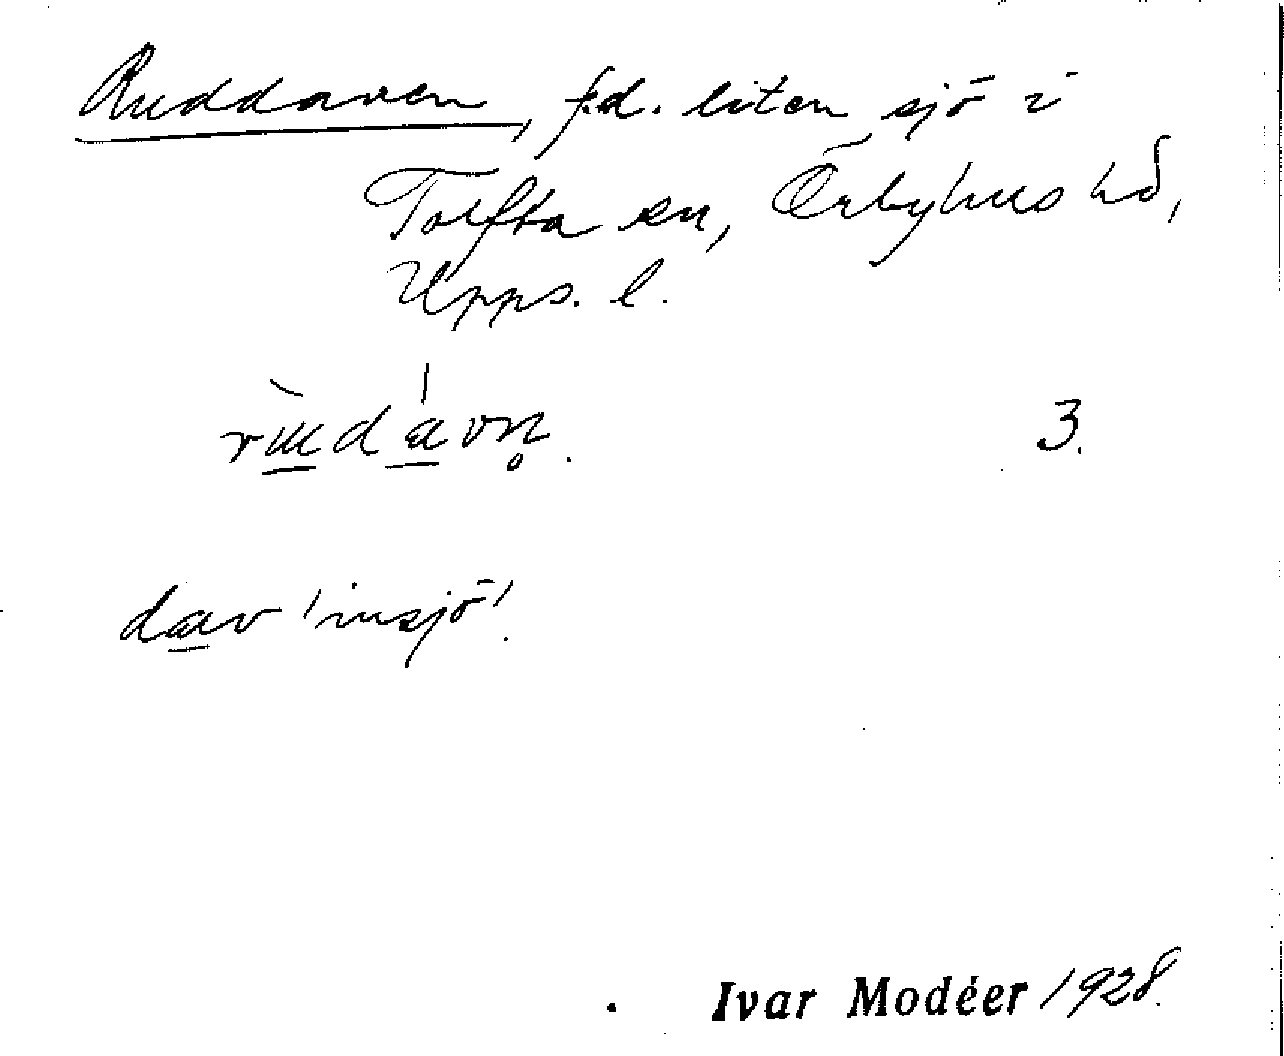 Ruddaven, f.d. liten sjö i
Tolfta sn, Örbyhus hd,
Upps. l.
rùdávn̥. 3.
dav 'insjö'.
Ivar Modéer 1928.